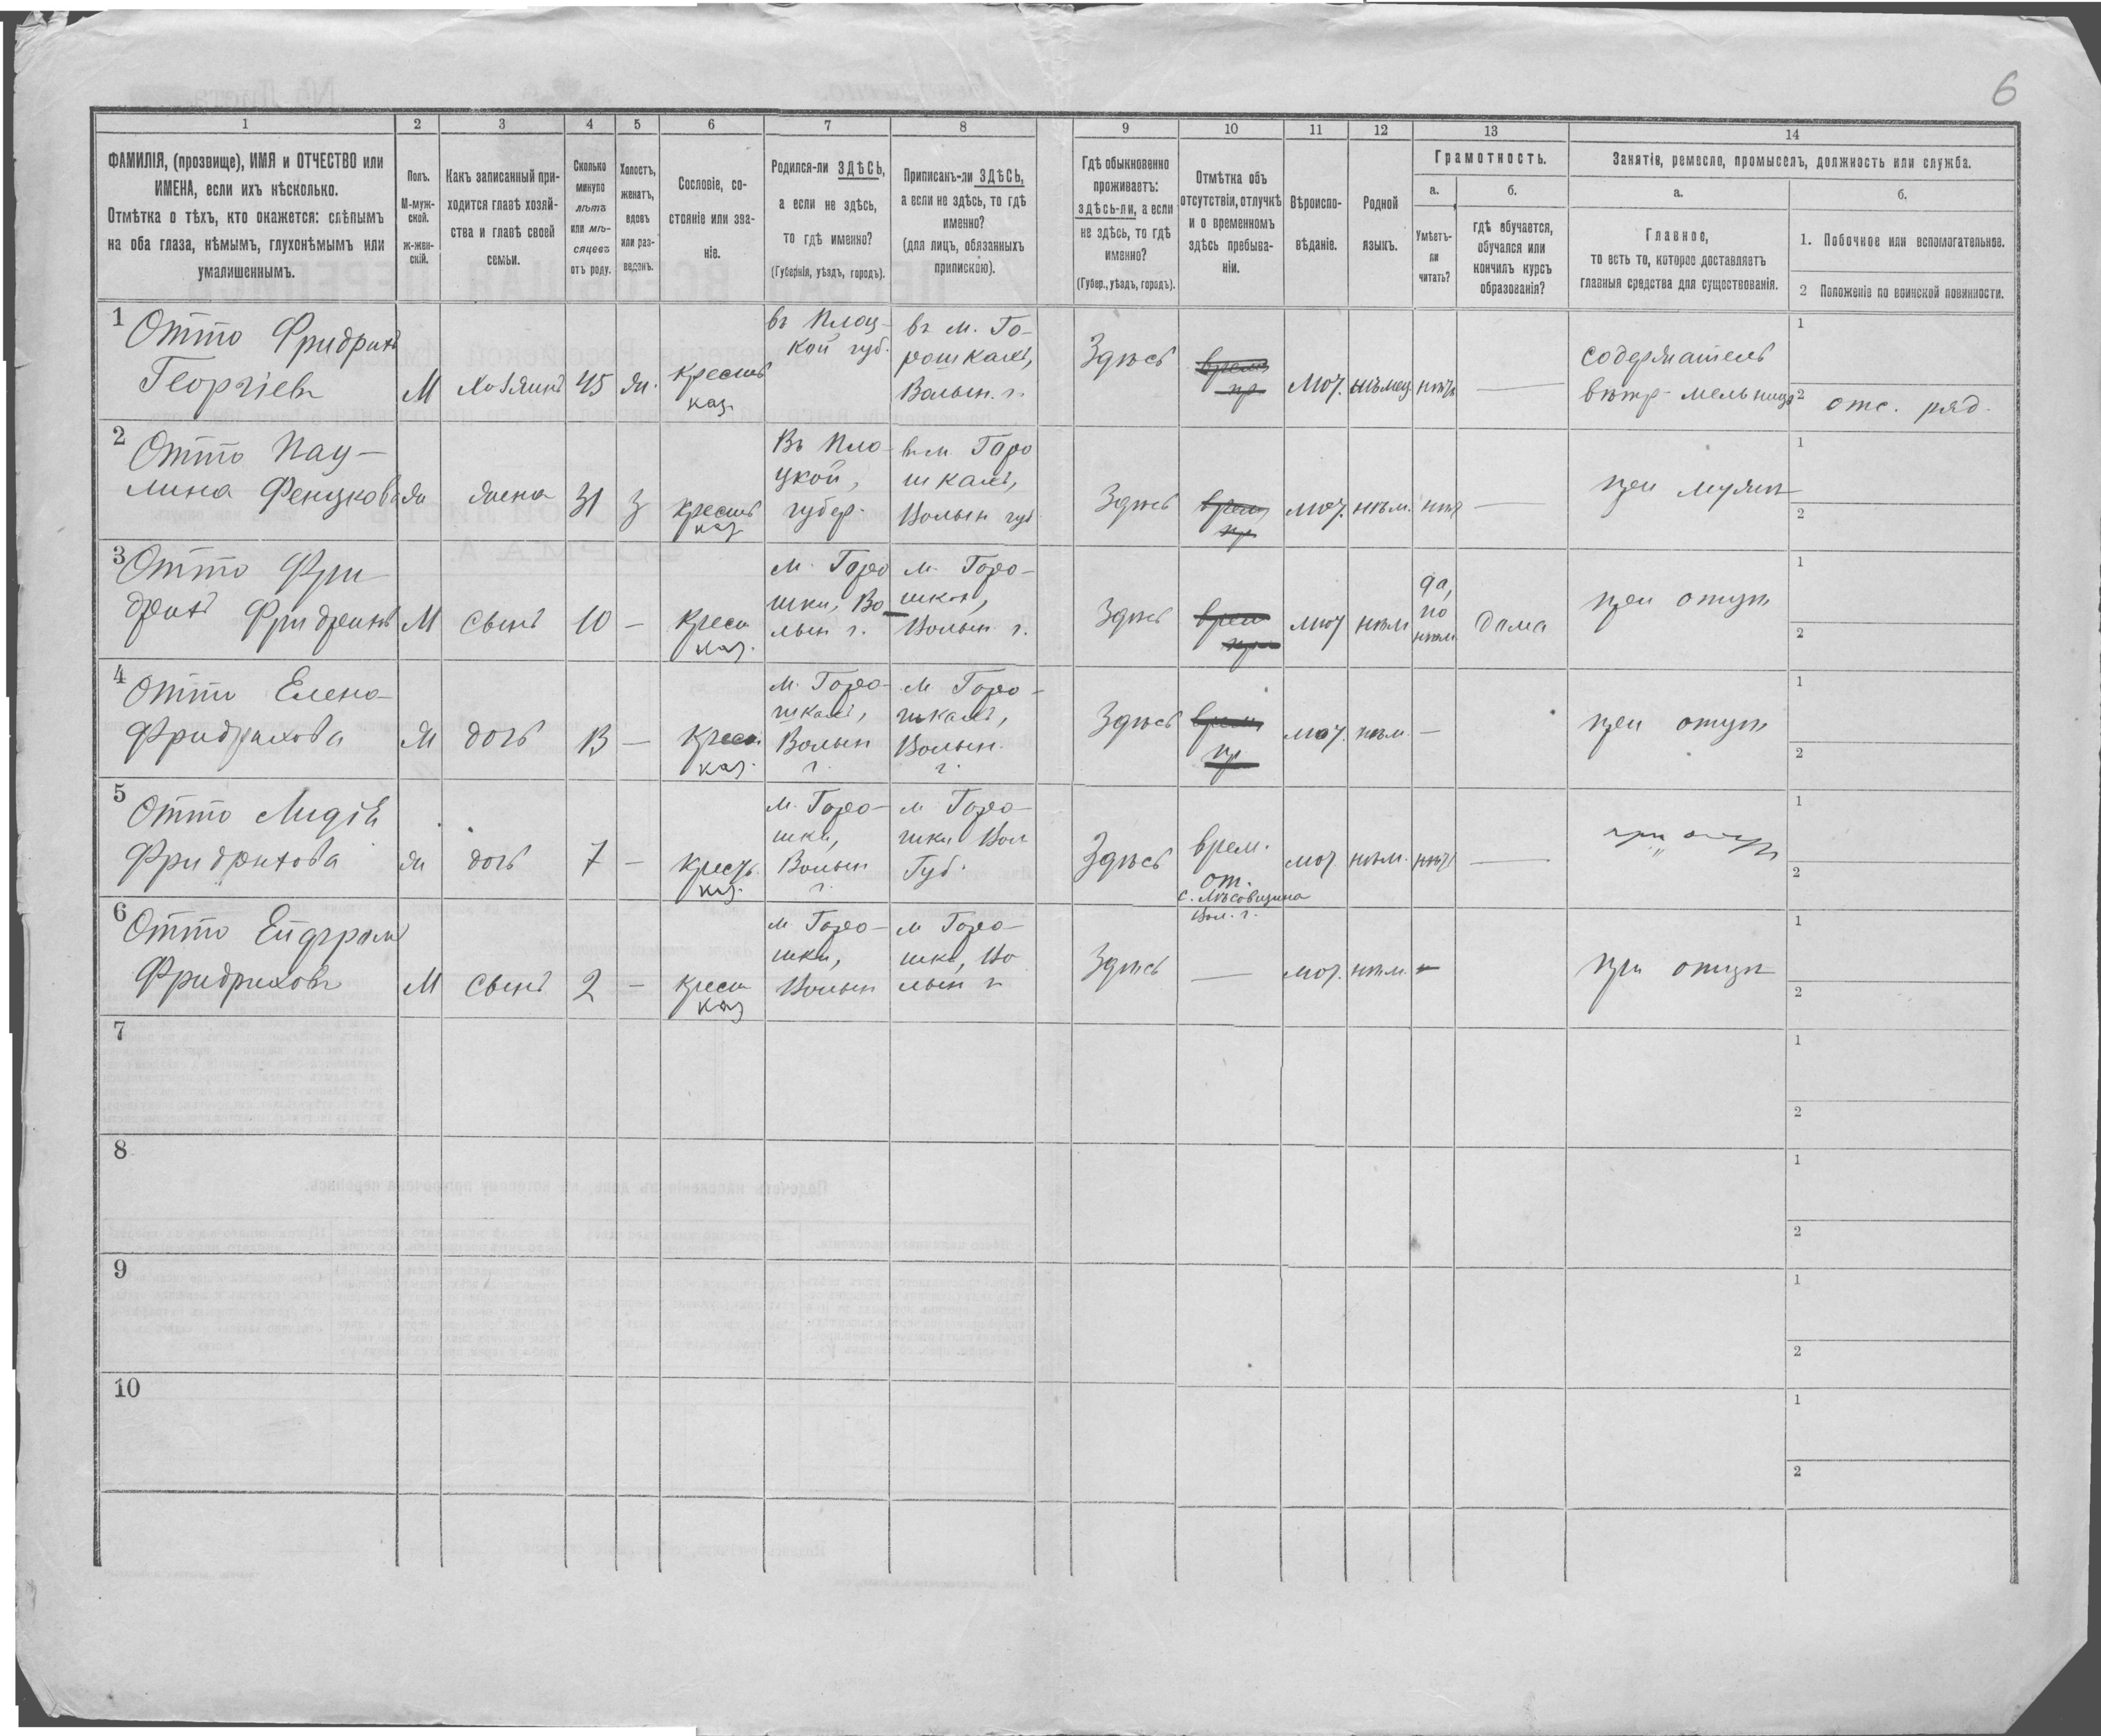 6
1 2 3 4 5 6 7 8 9 10 11 12 13 14
ФАМИЛІЯ, (прозвище), ИМЯ и ОТЧЕСТВО или
ИМЕНА, если ихъ нѣсколько.
Отмѣтка о тѣхъ, кто окажется: слѣпымъ
на оба глаза, нѣмымъ, глухонѣмымъ или
умалишеннымъ.
Полъ.
М-муж-
ской.
ж-жен-
скій.
Какъ записанный при-
ходится главѣ хозяй-
ства и главѣ своей
семьи.
Сколько
минуло
лѣтъ
или мѣ-
сяцевъ
отъ роду.
Холостъ,
женатъ,
вдовъ
или раз-
веденъ.
Сословіе, со-
стояніе или зва-
ніе.
Родился-ли ЗДѢСЬ,
а если не здѣсь,
то гдѣ именно?
(Губернія, уѣздъ, городъ).
Приписанъ-ли ЗДѢСЬ,
а если не здѣсь, то гдѣ
именно?
(для лицъ, обязанныхъ
припискою).
Гдѣ обыкновенно
проживаетъ:
здѣсь-ли, а если
не здѣсь, то гдѣ
именно?
(Губер., уѣздъ, городъ).
Отмѣтка объ
отсутствіи, отлучкѣ
и о временномъ
здѣсь пребыва-
ніи.
Вѣроиспо-
вѣданіе.
Родной
языкъ.
Грамотность.
а.
Умѣетъ-
ли
читать?
б.
гдѣ обучается,
обучался или
кончилъ курсъ
образованія?
Занятіе, ремесло, промыселъ, должность или служба.
а.
Главное,
то есть то, которое доставляетъ
главныя средства для существованія.
б.
1. Побочное или вспомогательное.
2 Положеніе по воинской повинности.
1
Отто Фридрихъ
Георгіевъ
М
Хозяинъ
45
ж.
крестъ
каз.
въ Плоц-
кой губ.
въ м. Го-
рошкахъ,
Волын. г.
Здѣсь
врем
пр
Лют.
нѣмец
нѣтъ
—
содержатель
вѣтр-мельницъ
1
2 отс. ряд.
2
Отто Пау-
лина Фенцкова
ж
жена
31
з
крестъ
каз.
Въ Пло-
цкой,
губер.
въ м. Горо
шкахъ,
Волын губ
Здѣсь
врем
пр
лют.
нѣм.
нѣт
—
при мужѣ
1
2
3
Отто Фри-
дрихъ Фридрихъ
М
сынъ
10
—
крест
каз.
м. Горо
шки, Во
лын г.
м. Горо-
шкахъ,
Волын. г.
Здѣсь
врем
пр
лют
нѣм
да,
по
нѣм.
дома
при отцѣ
1
2
4
Отто Елена
Фридрихова
ж
дочь
13
—
крест
каз.
м. Горо-
шкахъ,
Волын
г.
м Горо-
шкахъ,
Волын.
г.
Здѣсь
врем
пр
лют.
нѣм.
—
при отцѣ
1
2
5
Отто Лидія
Фридрихова
ж
дочь
7
—
крест.
каз.
м. Горо-
шки,
Волын
г.
м Горо-
шки Вол
Губ.
Здѣсь
врем.
от.
Вол. г.
лют.
нѣм.
нѣт
—
при отцѣ
1
2
6
Отто
Фридриховъ
М
сынъ
2
—
крест
каз
м Горо-
шки,
Волын
м Горо-
шки, Во
лын г
Здѣсь
—
лют.
нѣм.
—
при отцѣ
1
2
7
1
2
8
1
2
9
1
2
10
1
2